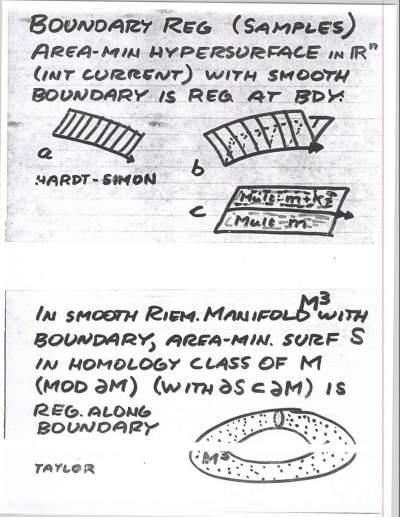 BOUNDARY REG (SAMPLES)
AREA-MIN HYPERSURFACE IN ℝⁿ
(INT CURRENT) WITH SMOOTH
BOUNDARY IS REG AT BDY.
a
b
HARDT-SIMON
c
Mult m+k
Mult m
IN SMOOTH RIEM. MANIFOLD M³ WITH
BOUNDARY, AREA-MIN. SURF S
IN HOMOLOGY CLASS OF M
(MOD ∂M) (WITH ∂S⊂∂M) IS
REG. ALONG
BOUNDARY
M³
TAYLOR